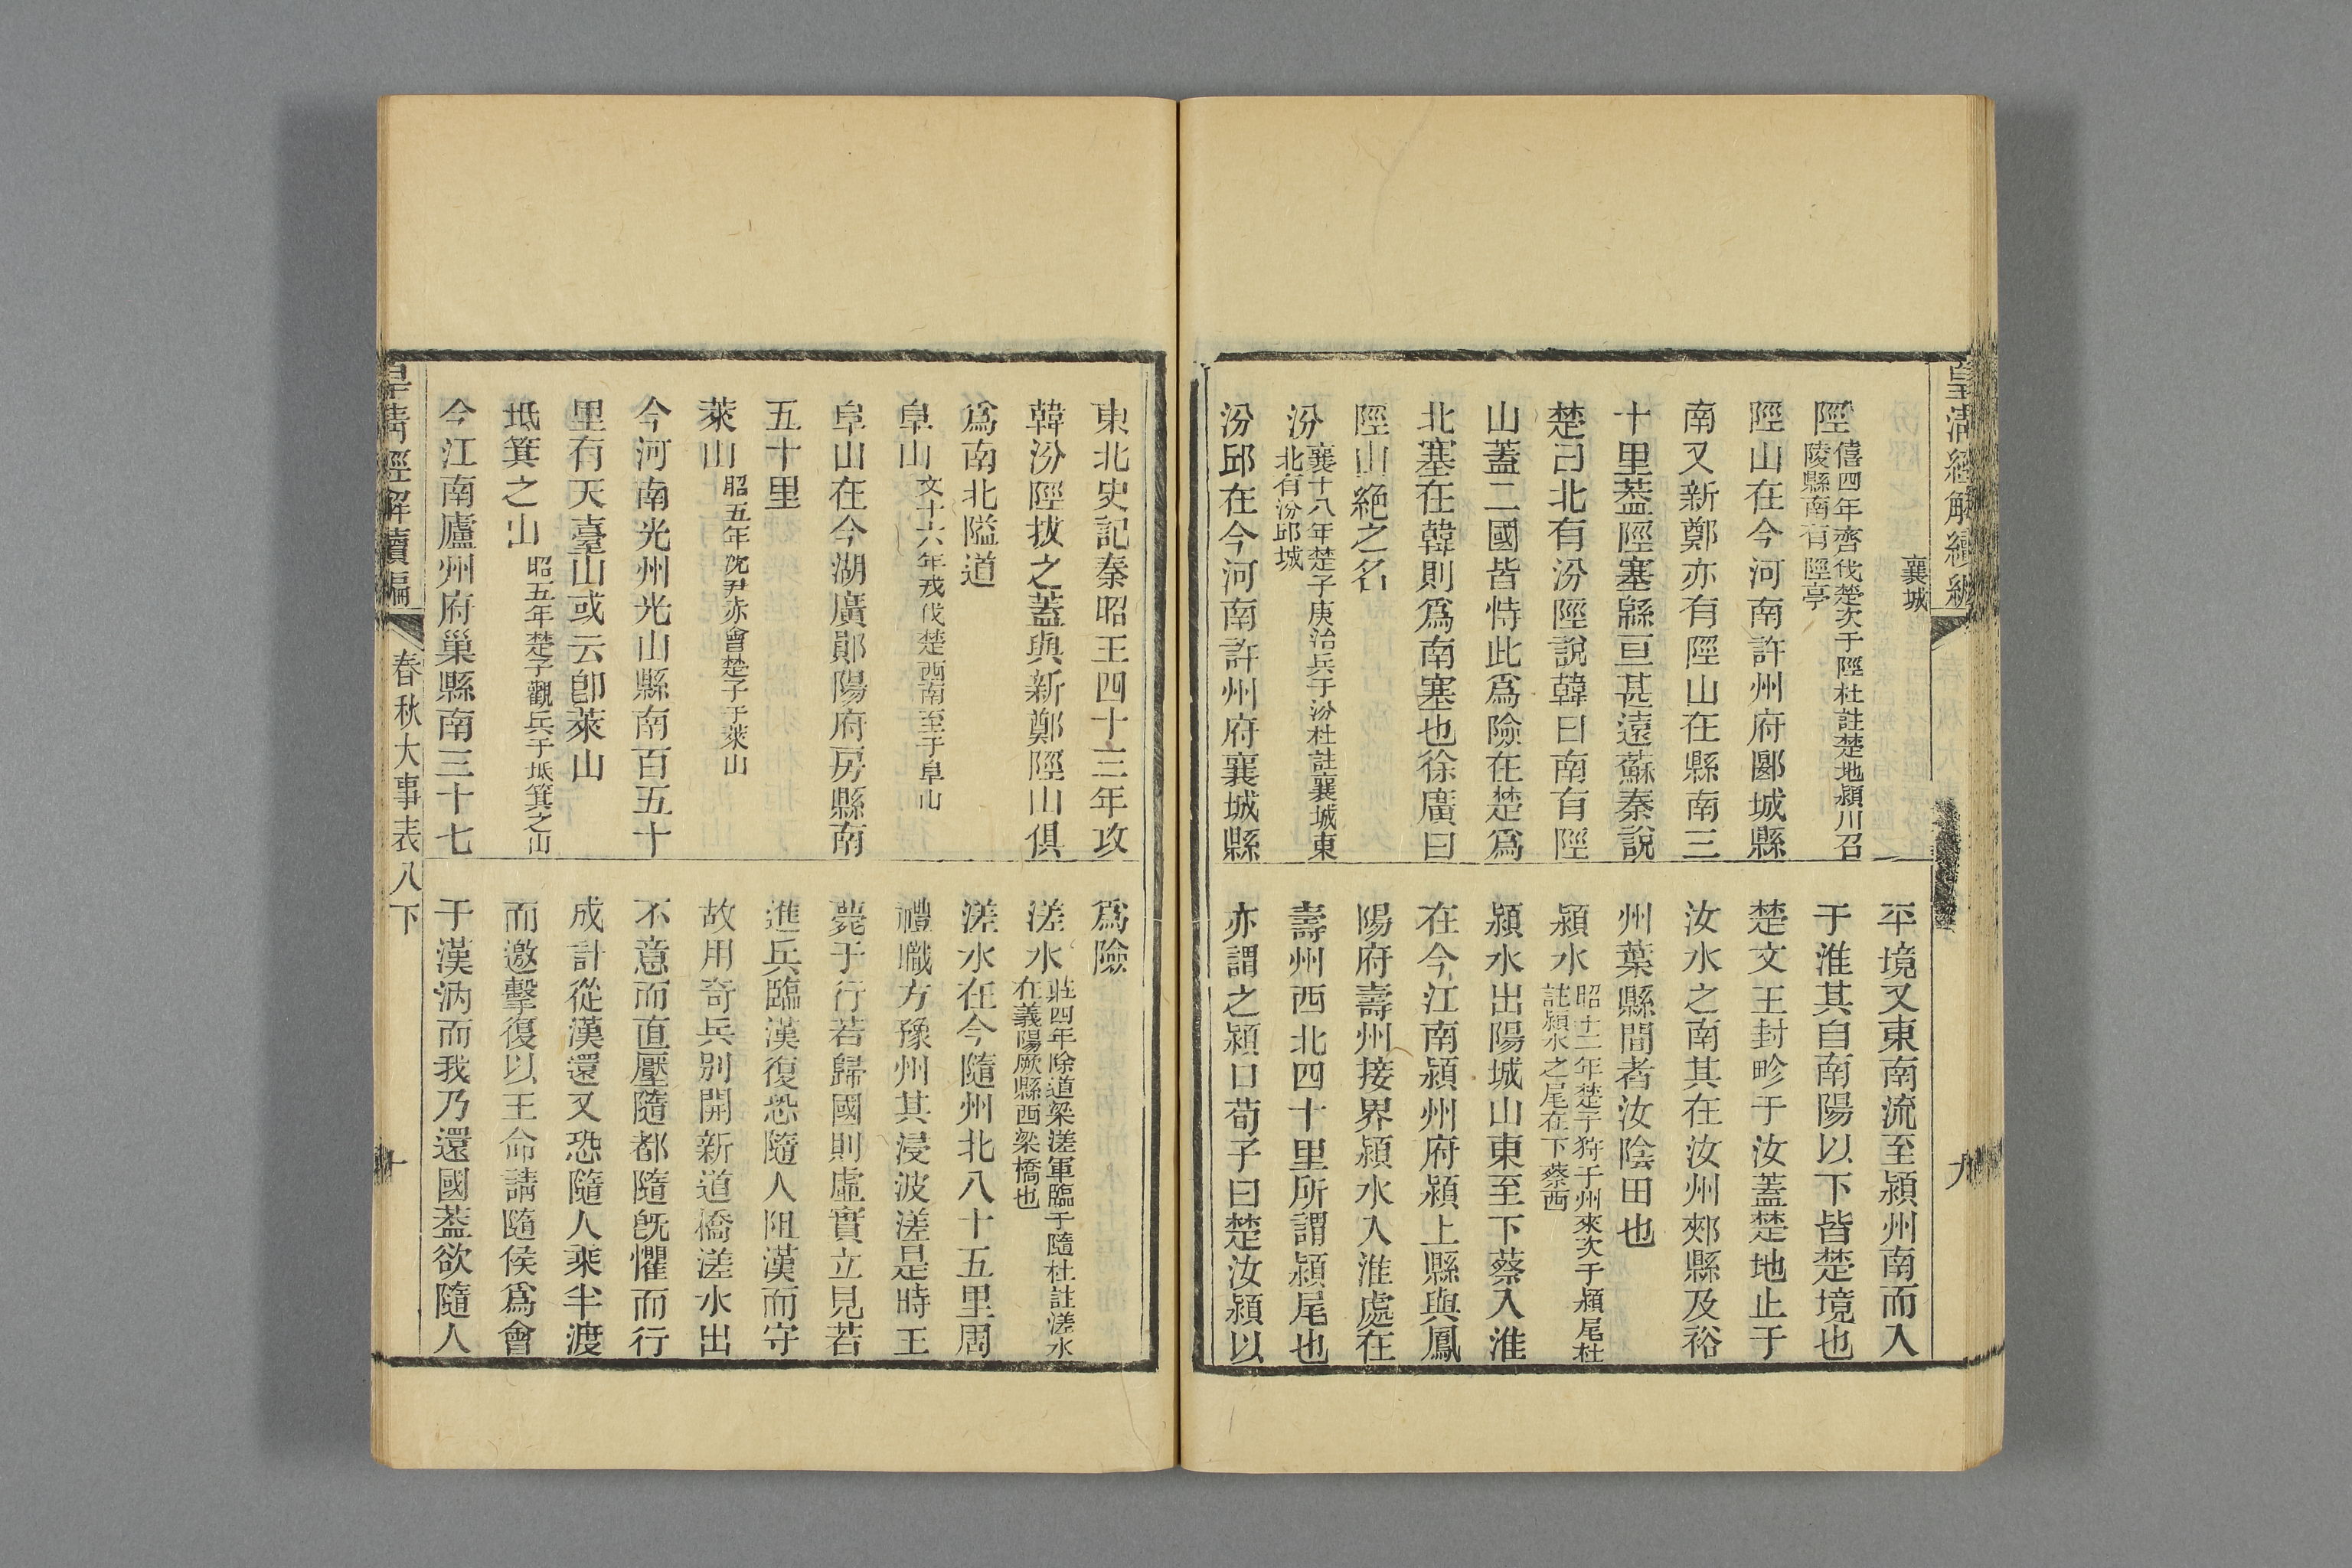 皇清經解續編
九
襄城
陘僖四年齊伐楚次于陘杜註楚地潁川召
陵縣南有陘亭
陘山在今河南許州府郾城縣
南又新鄭亦有陘山在縣南三
十里葢陘塞緜亘甚遠蘇秦說
楚曰北有汾陘說韓曰南有陘
山蓋二國皆恃此爲險在楚爲
北塞在韓則爲南塞也徐廣曰
陘山絕之名
汾襄十八年楚子庚治兵于汾杜註襄城東
北有汾邱城
汾邱在今河南許州府襄城縣
平境又東南流至潁州南而入
于淮其自南陽以下皆楚境也
楚文王封畛于汝蓋楚地止于
汝水之南其在汝州郟縣及裕
州葉縣間者汝陰田也
潁水昭十二年楚子狩于州來次于潁尾杜
註潁水之尾在下蔡西
潁水出陽城山東至下蔡入淮
在今江南潁州府潁上縣與鳳
陽府壽州接界潁水入淮處在
壽州西北四十里所謂潁尾也
亦謂之潁口荀子曰楚汝潁以
東北史記秦昭王四十三年攻
韓汾陘拔之蓋與新鄭陘山俱
爲南北隘道
阜山文十六年戎伐楚西南至于阜山
阜山在今湖廣鄖陽府房縣南
五十里
萊山昭五年沈尹赤會楚子于萊山
今河南光州光山縣南百五十
里有天臺山或云卽萊山
坻箕之山昭五年楚子觀兵于坻箕之山
今江南廬州府巢縣南三十七
爲險
溠水莊四年除道梁溠軍臨于隨杜註溠水
在義陽厥縣西梁橋也
溠水在今隨州北八十五里周
禮職方豫州其浸波溠是時王
薨于行若歸國則虛實立見若
進兵臨漢復恐隨人阻漢而守
故用奇兵別開新道橋溠水出
不意而直壓隨都隨旣懼而行
成計從漢還又恐隨人乘半渡
而邀擊復以王命請隨侯爲會
于漢汭而我乃還國葢欲隨人
皇清經解續編
春秋大事表八下
十